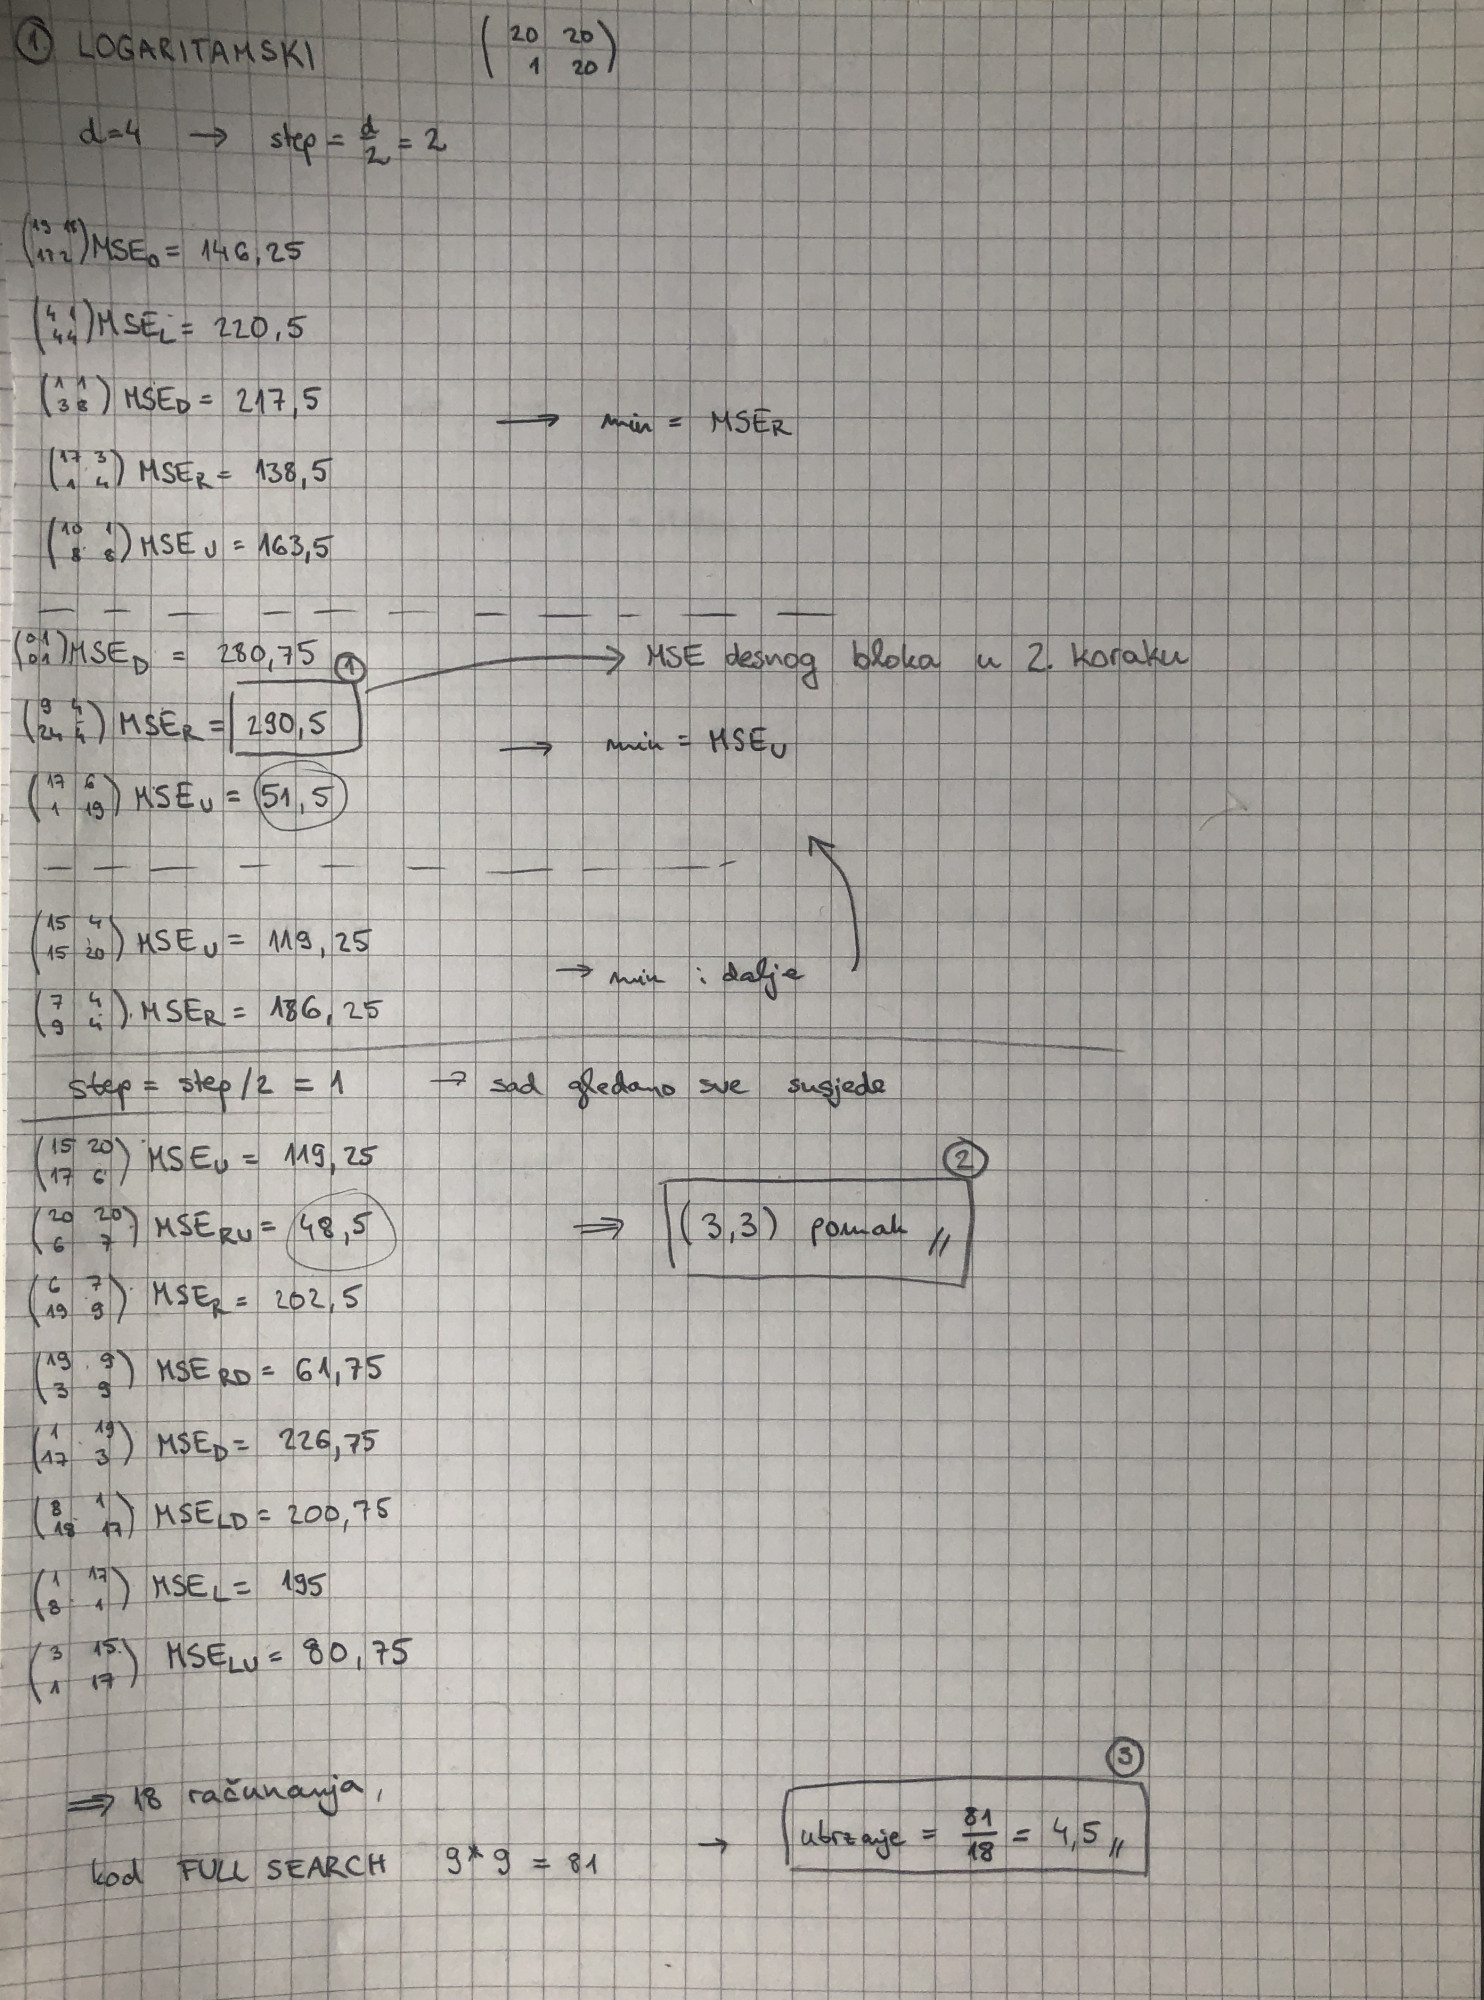 ① LOGARITAMSKI (20 20 / 1 20)
d=4 → step = d/2 = 2
(19 18 / 17 2) MSE₀ = 146,25
(4 1 / 4 4) MSE_L = 220,5
(1 1 / 3 8) MSE_D = 217,5
→ min = MSE_R
(17 3 / 1 4) MSE_R = 138,5
(10 1 / 8 8) MSE_U = 163,5
(0 1 / 0 1) MSE_D = 280,75 ① → MSE desnog bloka u 2. koraku
(9 4 / 24 4) MSE_R = 290,5 → min = MSE_U
(17 6 / 1 19) MSE_U = 51,5
(15 4 / 15 20) MSE_U = 119,25
→ min i dalje
(7 4 / 9 4) MSE_R = 186,25
step = step/2 = 1 → sad gledamo sve susjede
(15 20 / 17 6) MSE_U = 119,25 ②
(20 20 / 6 7) MSE_RU = 48,5 ⇒ (3,3) pomak //
(6 7 / 19 9) MSE_R = 202,5
(19 9 / 3 9) MSE_RD = 61,75
(1 19 / 17 3) MSE_D = 226,75
(8 1 / 18 17) MSE_LD = 200,75
(1 17 / 8 1) MSE_L = 195
(3 15 / 1 17) MSE_LU = 80,75
③
⇒ 18 računanja,
→ ubrzanje = 81/18 = 4,5 //
kod FULL SEARCH 9*9 = 81